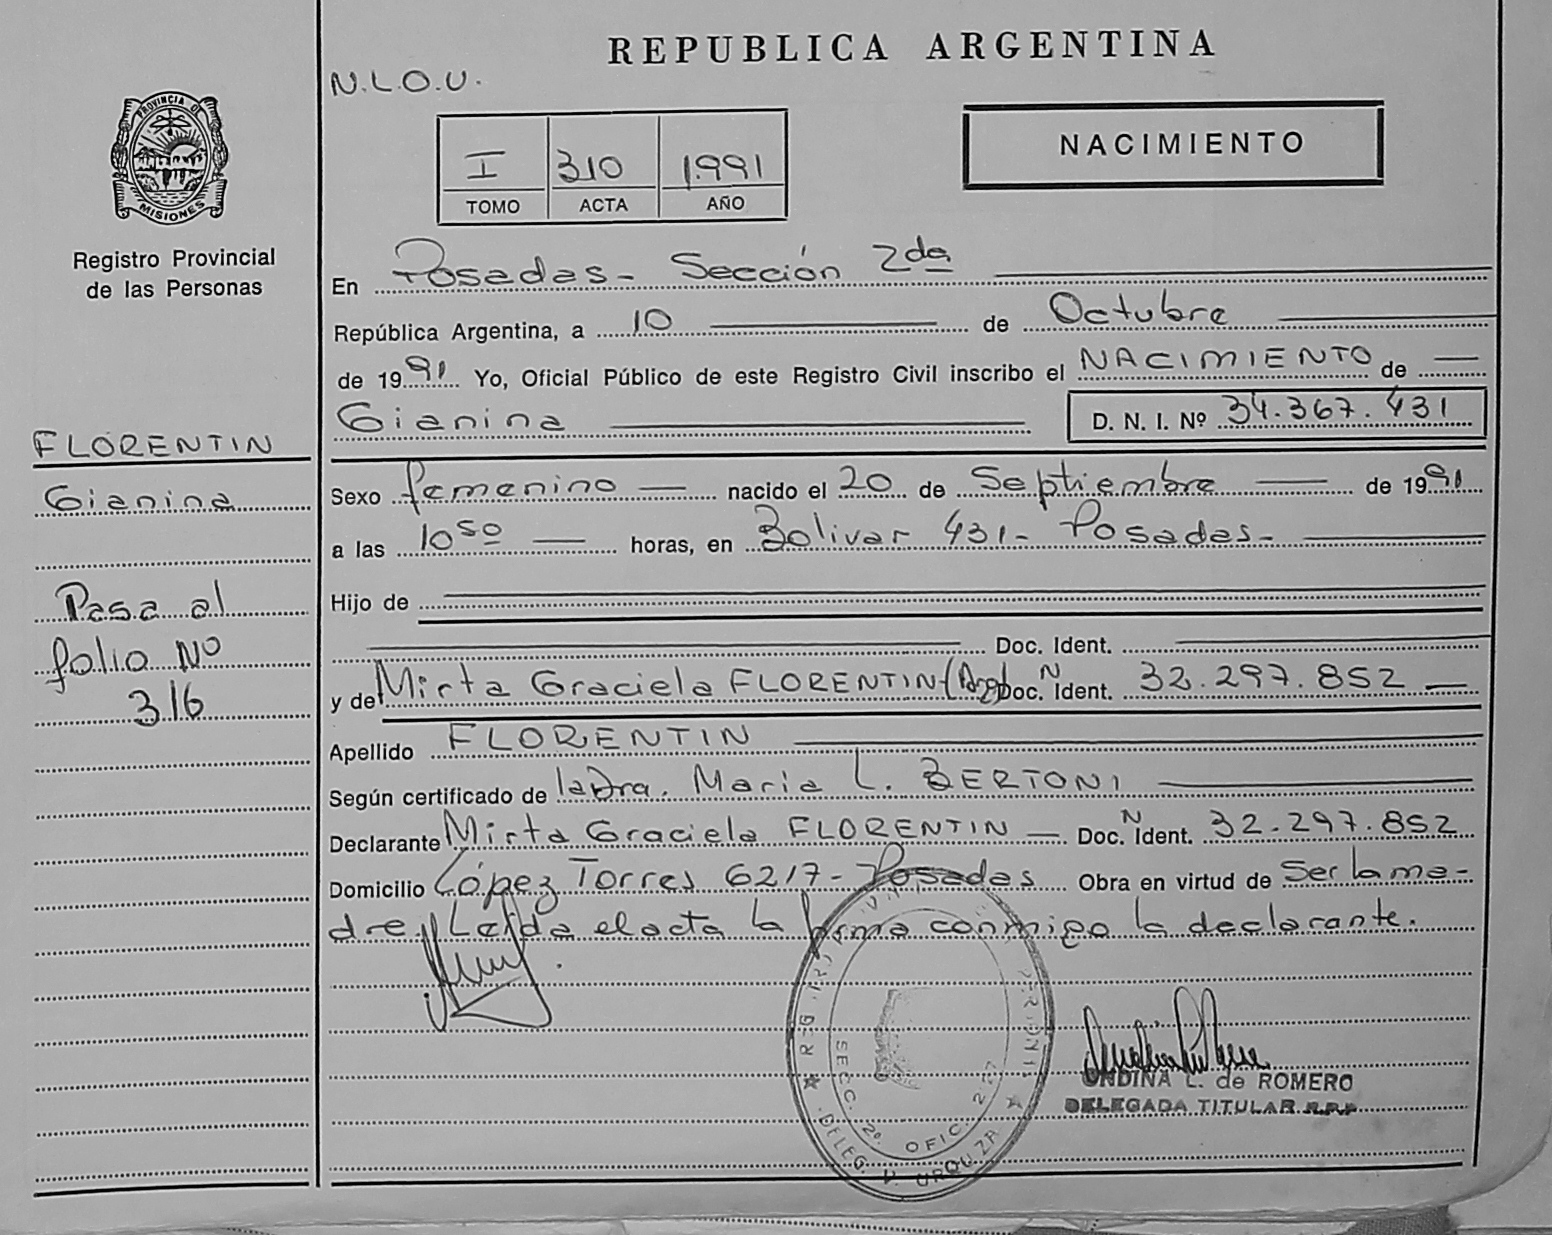 REPUBLICA ARGENTINA
N.L.O.U.
PROVINCIA DE
MISIONES
Registro Provincial
de las Personas
I 310 1.991
TOMO ACTA AÑO
NACIMIENTO
En Posadas - Sección 2da
República Argentina, a 10 de Octubre
de 1991 Yo, Oficial Público de este Registro Civil inscribo el NACIMIENTO de
Gianina D. N. I. Nº 34.367.431
FLORENTIN
Gianina
Pasa al
folio Nº
316
Sexo femenino nacido el 20 de Septiembre de 1991
a las 10 50 horas, en Bolivar 431 - Posadas -
Hijo de
Doc. Ident.
y de Mirta Graciela FLORENTIN (Arg) Doc. N Ident. 32.297.852
Apellido FLORENTIN
Según certificado de la Dra. Maria L. BERTONI
Declarante Mirta Graciela FLORENTIN Doc. N Ident. 32.297.852
Domicilio López Torres 6217 - Posadas Obra en virtud de Ser la ma-
dre. Leída el acta la firma conmigo la declarante.
SECC. 2º OFIC. 227
DELEG. V. URQUIZA
ONDINA L. de ROMERO
DELEGADA TITULAR R.P.P.